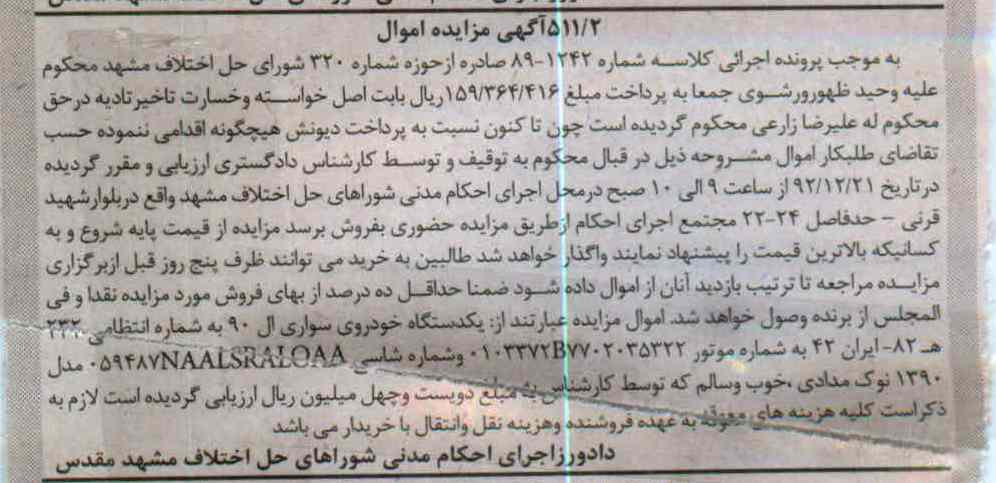 ۵۱۱/۲آگهی مزایده اموال
به موجب پرونده اجرائی کلاسه شماره ۱۲۴۲-۸۹ صادره ازحوزه شماره ۳۲۰ شورای حل اختلاف مشهد محکوم
علیه وحید ظهورورشوی جمعا به پرداخت مبلغ ۱۵۹/۳۶۴/۴۱۶ریال بابت اصل خواسته وخسارت تاخیرتادیه درحق
محکوم له علیرضا زارعی محکوم گردیده است چون تا کنون نسبت به پرداخت دیونش هیچگونه اقدامی ننموده حسب
تقاضای طلبکار اموال مشروحه ذیل در قبال محکوم به توقیف و توسط کارشناس دادگستری ارزیابی و مقرر گردیده
درتاریخ ۹۲/۱۲/۲۱ از ساعت ۹ الی ۱۰ صبح درمحل اجرای احکام مدنی شوراهای حل اختلاف مشهد واقع دربلوارشهید
قرنی - حدفاصل ۲۴-۲۲ مجتمع اجرای احکام ازطریق مزایده حضوری بفروش برسد مزایده از قیمت پایه شروع و به
کسانیکه بالاترین قیمت را پیشنهاد نمایند واگذار خواهد شد طالبین به خرید می توانند ظرف پنج روز قبل ازبرگزاری
مزایده مراجعه تا ترتیب بازدید آنان از اموال داده شود ضمنا حداقل ده درصد از بهای فروش مورد مزایده نقدا و فی
المجلس از برنده وصول خواهد شد. اموال مزایده عبارتند از: یکدستگاه خودروی سواری ال ۹۰ به شماره انتظامی ۲۳۲
هـ ۸۲- ایران ۴۲ به شماره موتور ۰۱۰۳۳۷۲B۷۷۰۲۰۳۵۳۲۲ وشماره شاسی ۰۵۹۴۸۷NAALSRALOAA مدل
۱۳۹۰ نوک مدادی ،خوب وسالم که توسط کارشناس به مبلغ دویست وچهل میلیون ریال ارزیابی گردیده است لازم به
ذکراست کلیه هزینه های معوقه به عهده فروشنده وهزینه نقل وانتقال با خریدار می باشد
دادورزاجرای احکام مدنی شوراهای حل اختلاف مشهد مقدس